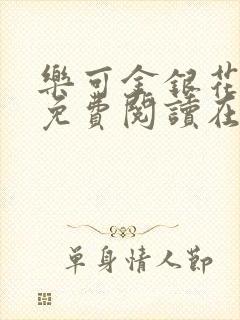 樂可金銀花
免費閱讀在
單身情人節